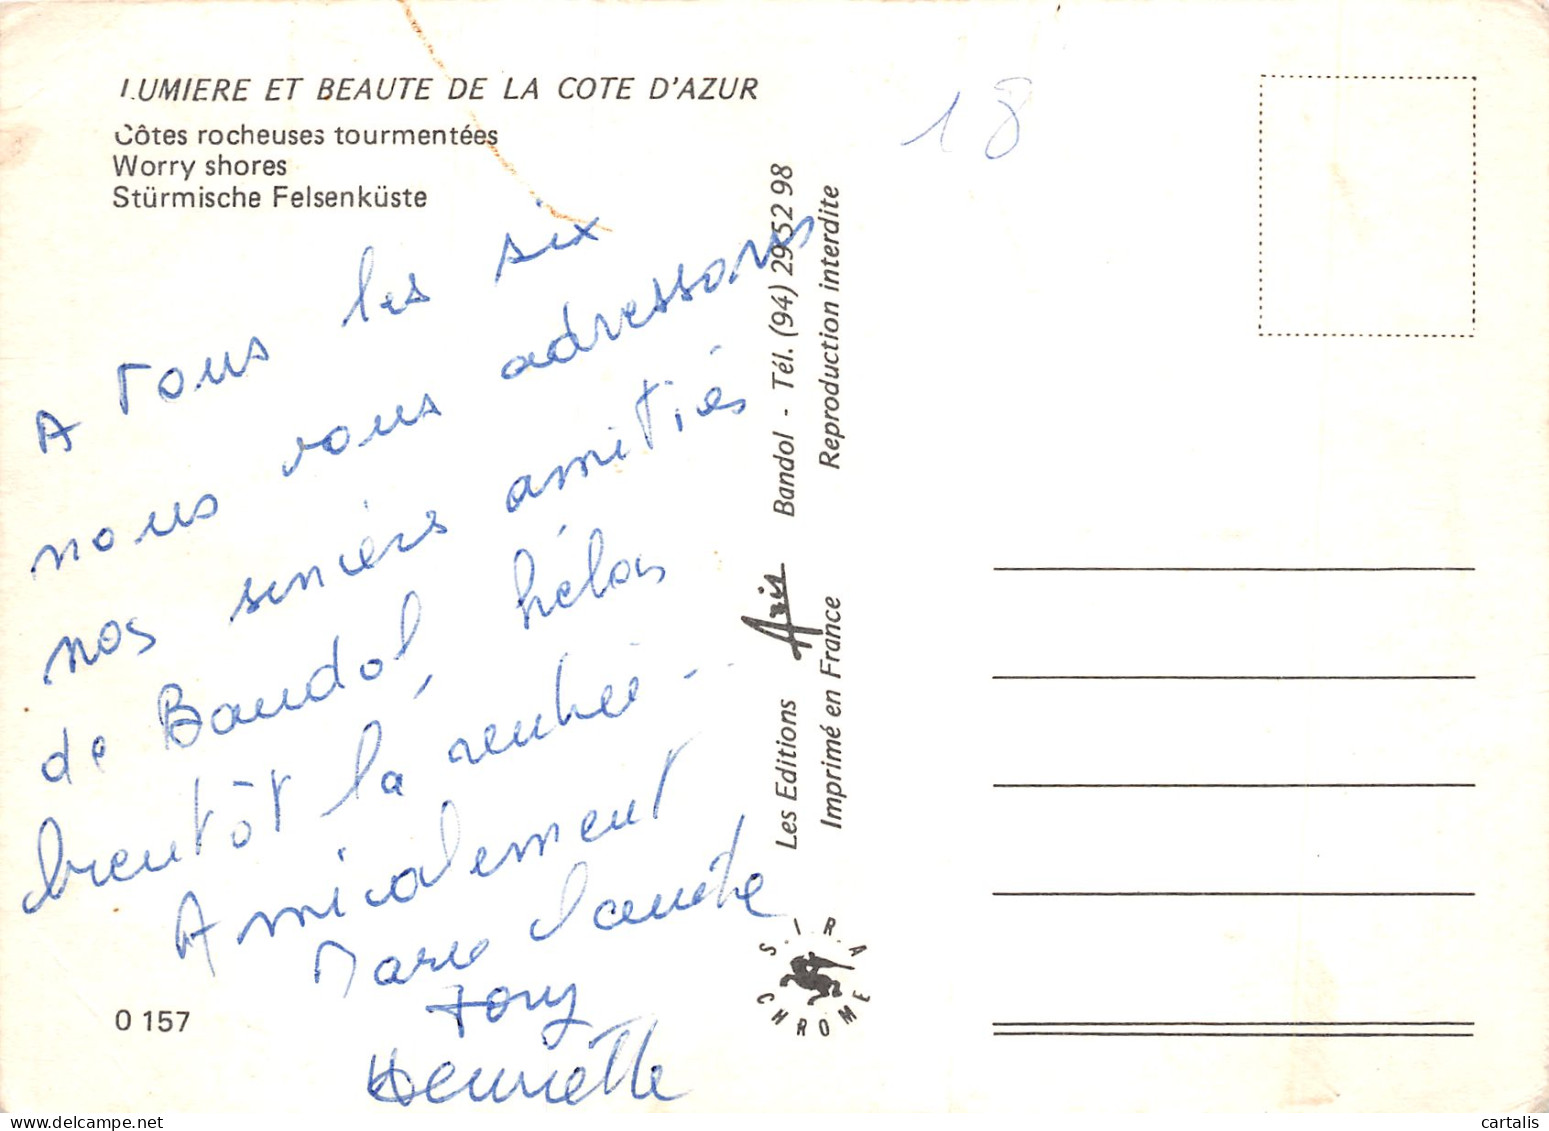 LUMIERE ET BEAUTE DE LA COTE D'AZUR
Côtes rocheuses tourmentées
Worry shores
Stürmische Felsenküste
18
A tous les six
nous vous adressons
nos sincères amitiés
de Bandol, hélas
bientôt la rentrée...
Amicalement
Marie Claude
Tony
Henriette
0 157
Les Editions Aris Bandol - Tél. (94) 29 52 98
Imprimé en France Reproduction interdite
S.I.R.A
CHROME
cartalis